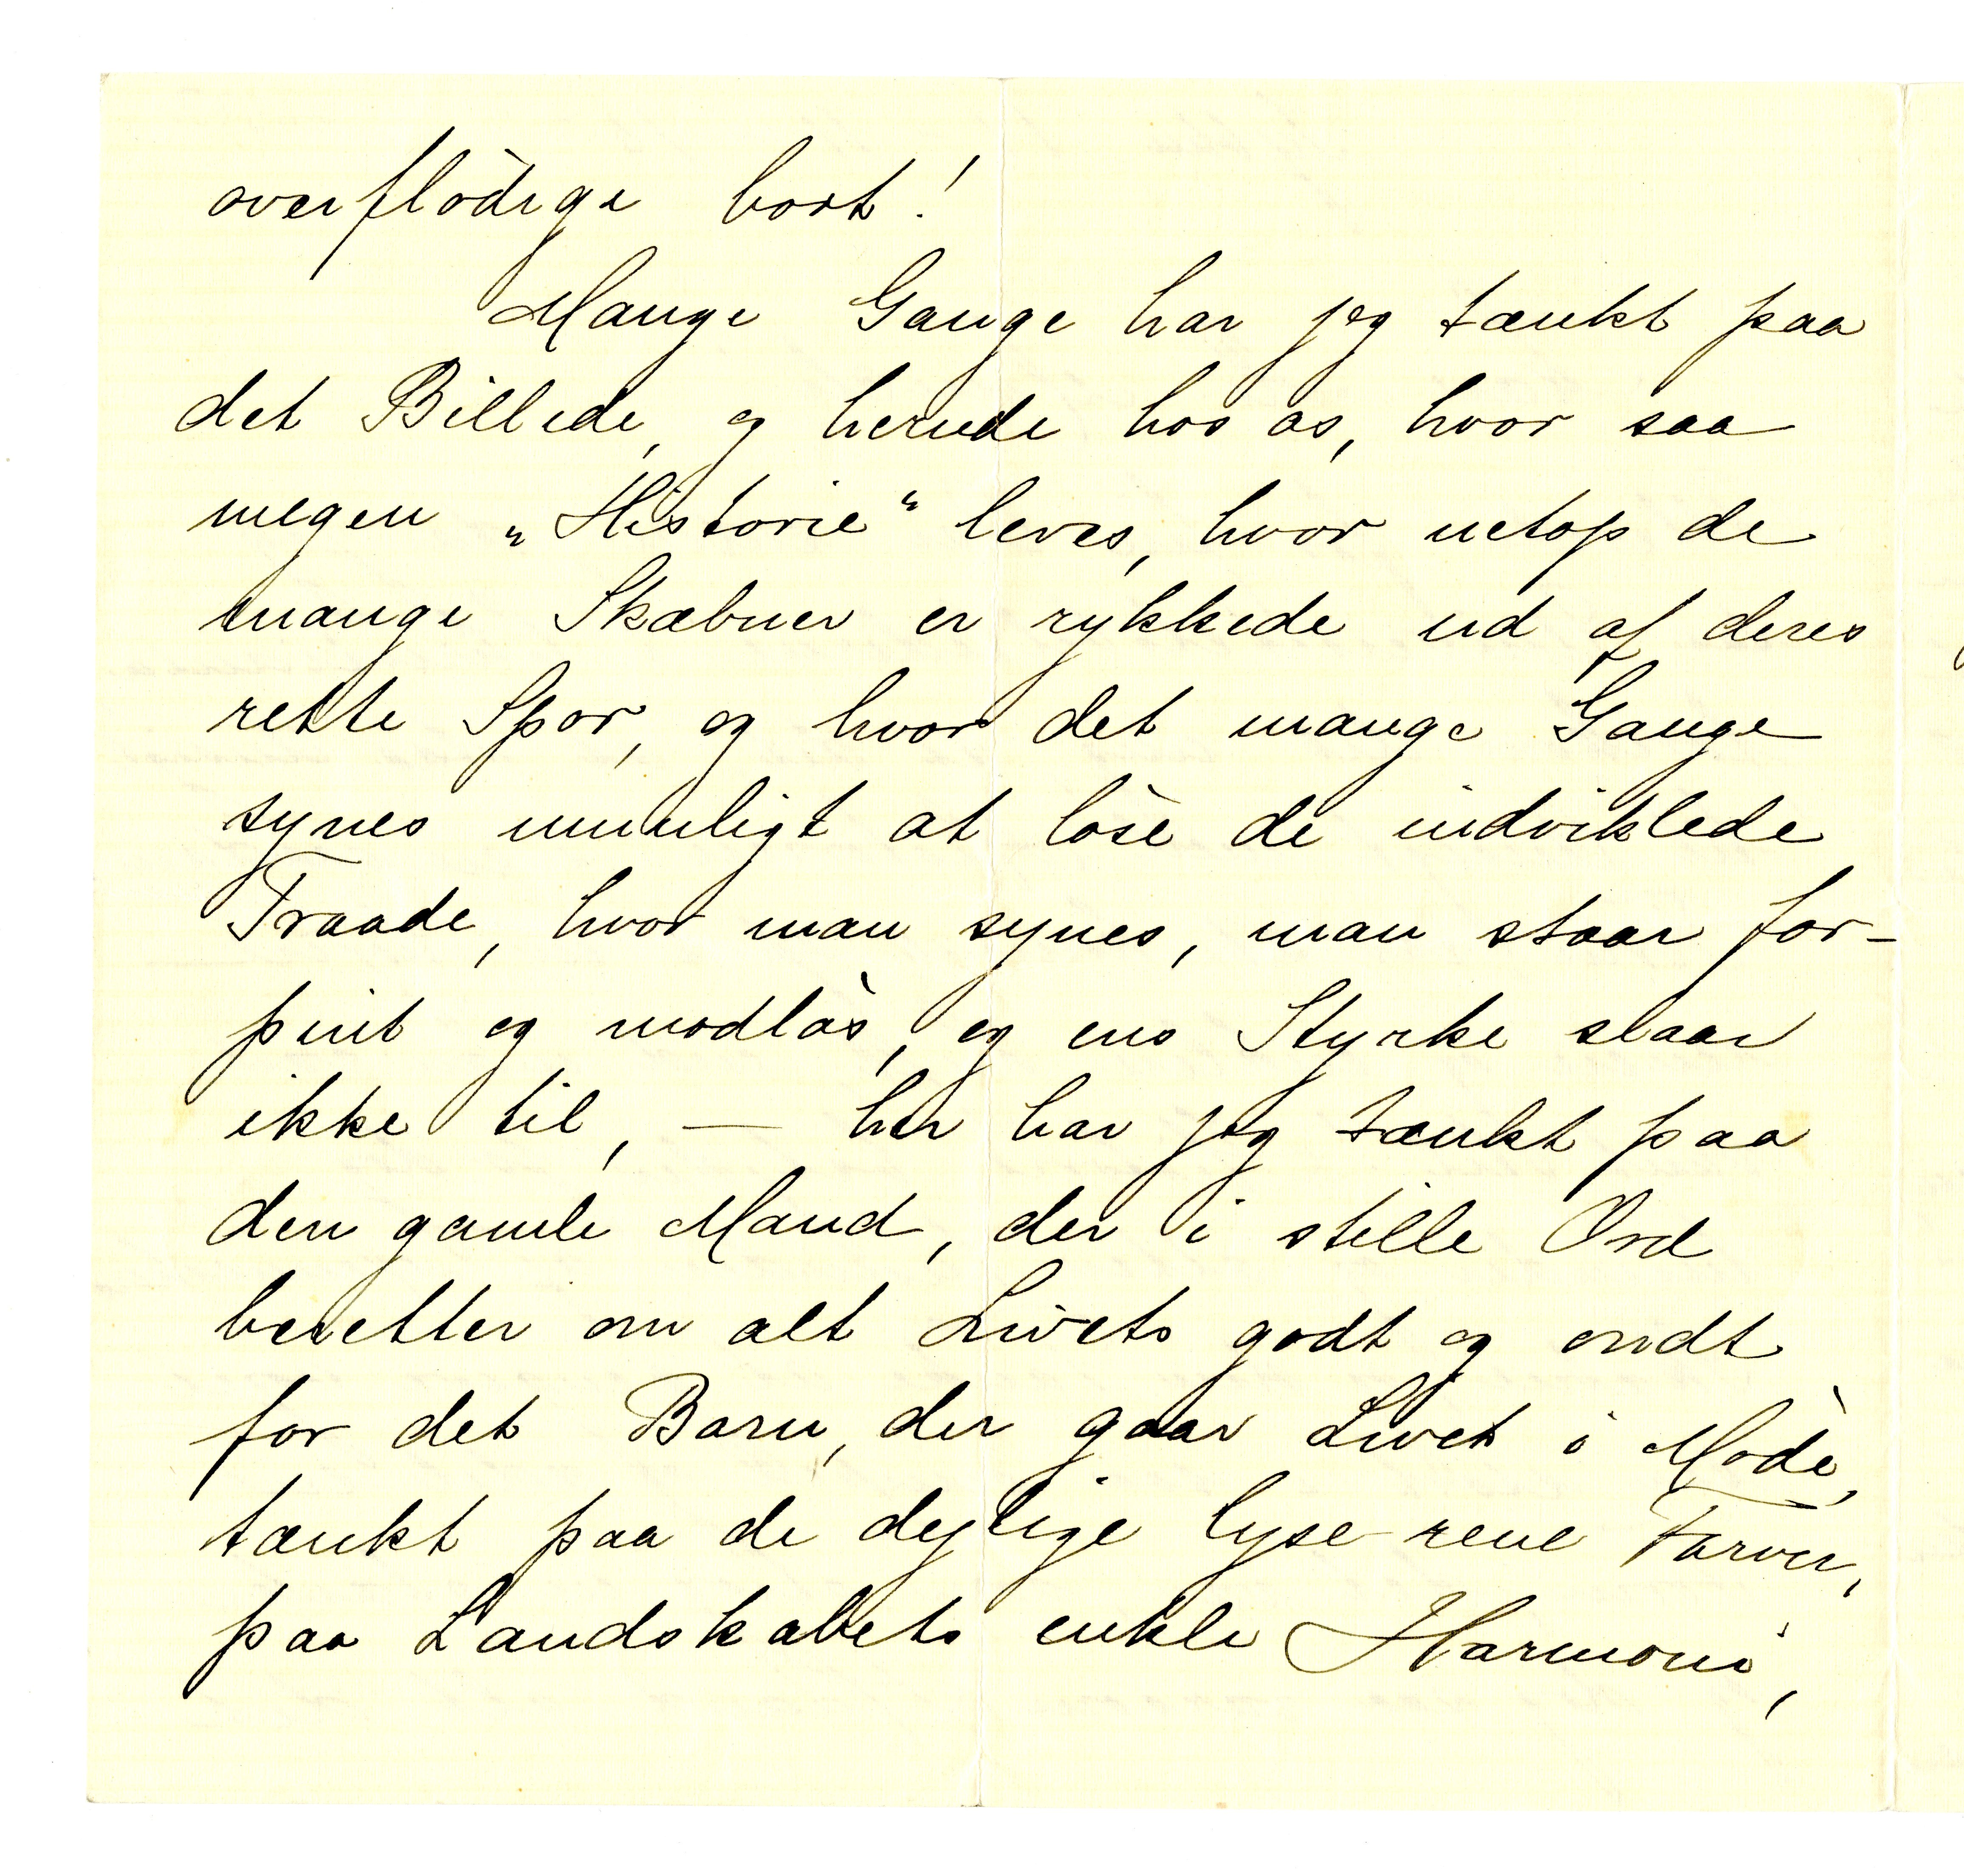 overflødige bort!
Mange Gange har jeg tænkt paa
det Billede, og herude hos os, hvor saa
megen „Historie“ leves, hvor netop de
mange Skæbner er rykkede ud af deres
rette Spor, og hvor det mange Gange
synes umuligt at løse de indviklede
Traade, hvor man synes, man staar for-
pint og modløs, og ens Styrke slaar
ikke til, — her har jeg tænkt paa
den gamle Mand, der i stille Ord
beretter om alt Livets godt og ondt
for det Barn, der gaar Livet i Møde,
tænkt paa de dejlige lyse rene Farver,
paa Landskabets enkle Harmoni,